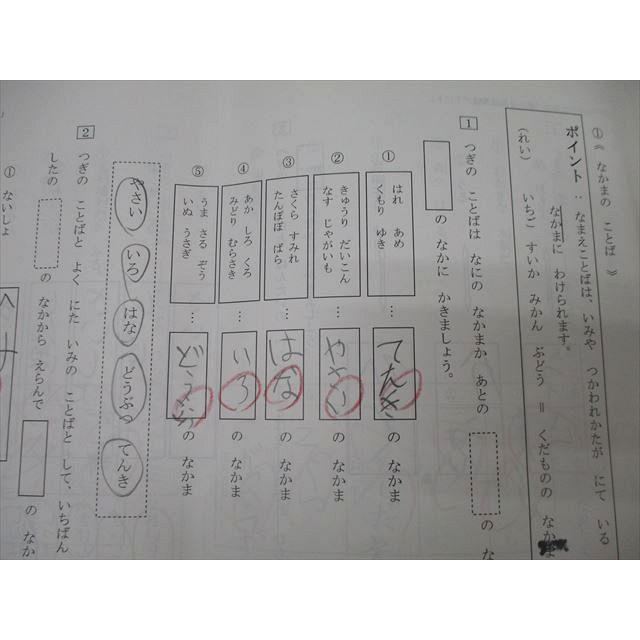 ① 《 なかまの ことば 》
ポイント：なまえことばは、いみや つかわれかたが にて いる
なかまに わけられます。
(れい) いちご すいか みかん ぶどう ＝ くだものの なかま
1 つぎの ことばは なにの なかまか あとの の な
の なかに かきましょう。
① はれ あめ
くもり ゆき
… てんき の なかま
② きゅうり だいこん
なす じゃがいも
… やさい の なかま
③ さくら すみれ
たんぽぽ ばら
… はな の なかま
④ あか しろ くろ
みどり むらさき
… いろ の なかま
⑤ うま さる ぞう
いぬ うさぎ
… どうぶつ の なかま
やさい いろ はな どうぶつ てんき
2 つぎの ことばと よく にた いみの ことばと して、いちばん
したの の なかから えらんで の なか
① ないしょ